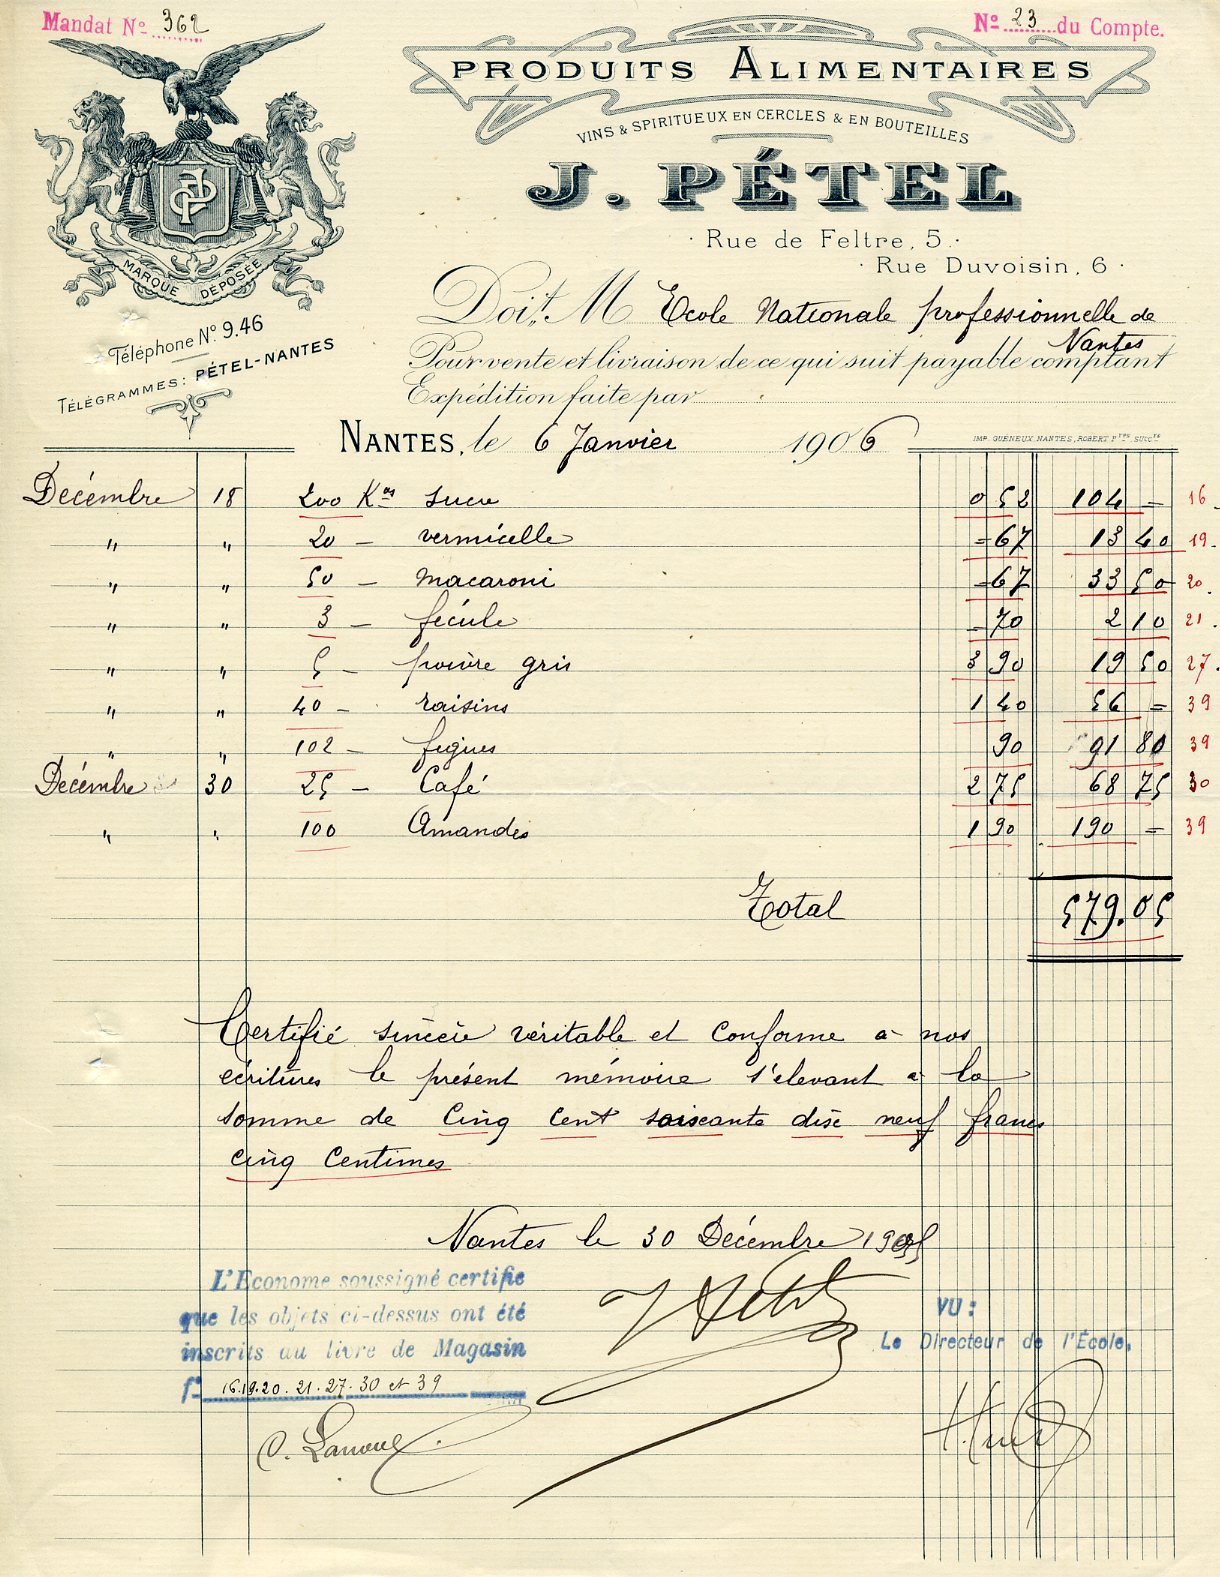 Mandat Nº 362
Nº 23 du Compte.
PRODUITS ALIMENTAIRES
VINS & SPIRITUEUX EN CERCLES & EN BOUTEILLES
J. PÉTEL
Rue de Feltre, 5.
Rue Duvoisin, 6
JP
MARQUE DÉPOSÉE
Téléphone Nº 9.46
TÉLÉGRAMMES: PÉTEL-NANTES
Doit M Ecole Nationale professionnelle de
Nantes
Pour vente et livraison de ce qui suit payable comptant
Expédition faite par
NANTES, le 6 Janvier 1906
IMP. GUÉNEUX, NANTES, ROBERT Fres SUCCrs
Décembre 18 200 Kos sucre 0 52 104 - 16
" " 20 - vermicelle - 67 13 40 19.
" " 50 - macaroni - 67 33 50 20.
" " 3 - fécule - 70 2 10 21.
" " 5 - poivre gris 3 90 19 50 27.
" " 40 - raisins 1 40 56 - 39
" " 102 - figues 90 91 80 39
Décembre 30 25 - Café 2 75 68 75 30
" " 100 Amandes 1 90 190 - 39
Total 579.05
Certifié sincère véritable et conforme à nos
écritures le présent mémoire s'elevant à la
somme de Cinq Cent soixante dix neuf francs
cinq Centimes
Nantes le 30 Décembre 1905
L'Econome soussigné certifie
que les objets ci-dessus ont été
inscrits au livre de Magasin
fº 16.19.20.21.27.30 et 39
VU:
Le Directeur de l'École,